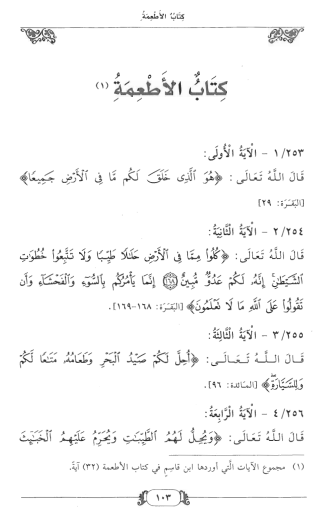 كِتَابُ الأَطْعِمَةِ
كِتَابُ الأَطْعِمَةُ (١)
١/٢٥٣ - الْآيَةُ الْأُولَى:
قَالَ اللَّهُ تَعَالَى: ﴿هُوَ الَّذِي خَلَقَ لَكُم مَّا فِي الْأَرْضِ جَمِيعًا﴾
[البَقَرَة: ٢٩]
٢/٢٥٤ - الْآيَةُ الثَّانِيَةُ:
قَالَ اللَّهُ تَعَالَى: ﴿كُلُوا مِمَّا فِي الْأَرْضِ حَلَالًا طَيِّبًا وَلَا تَتَّبِعُوا خُطُوَاتِ
الشَّيْطَانِ إِنَّهُ لَكُمْ عَدُوٌّ مُّبِينٌ ﴿١٦٨﴾ إِنَّمَا يَأْمُرُكُم بِالسُّوءِ وَالْفَحْشَاءِ وَأَن
تَقُولُوا عَلَى اللَّهِ مَا لَا تَعْلَمُونَ﴾ [البَقَرَة: ١٦٨-١٦٩].
٣/٢٥٥ - الْآيَةُ الثَّالِثَةُ:
قَالَ اللَّهُ تَعَالَى: ﴿أُحِلَّ لَكُمْ صَيْدُ الْبَحْرِ وَطَعَامُهُ مَتَاعًا لَّكُمْ
وَلِلسَّيَّارَةِ﴾ [المائدة: ٩٦].
٤/٢٥٦ - الْآيَةُ الرَّابِعَةُ:
قَالَ اللَّهُ تَعَالَى: ﴿وَيُحِلُّ لَهُمُ الطَّيِّبَاتِ وَيُحَرِّمُ عَلَيْهِمُ الْخَبَائِثَ
(١) مجموع الآيات الَّتي أوردها ابن قاسم في كتاب الأطعمة (٣٢) آية.
١٠٣